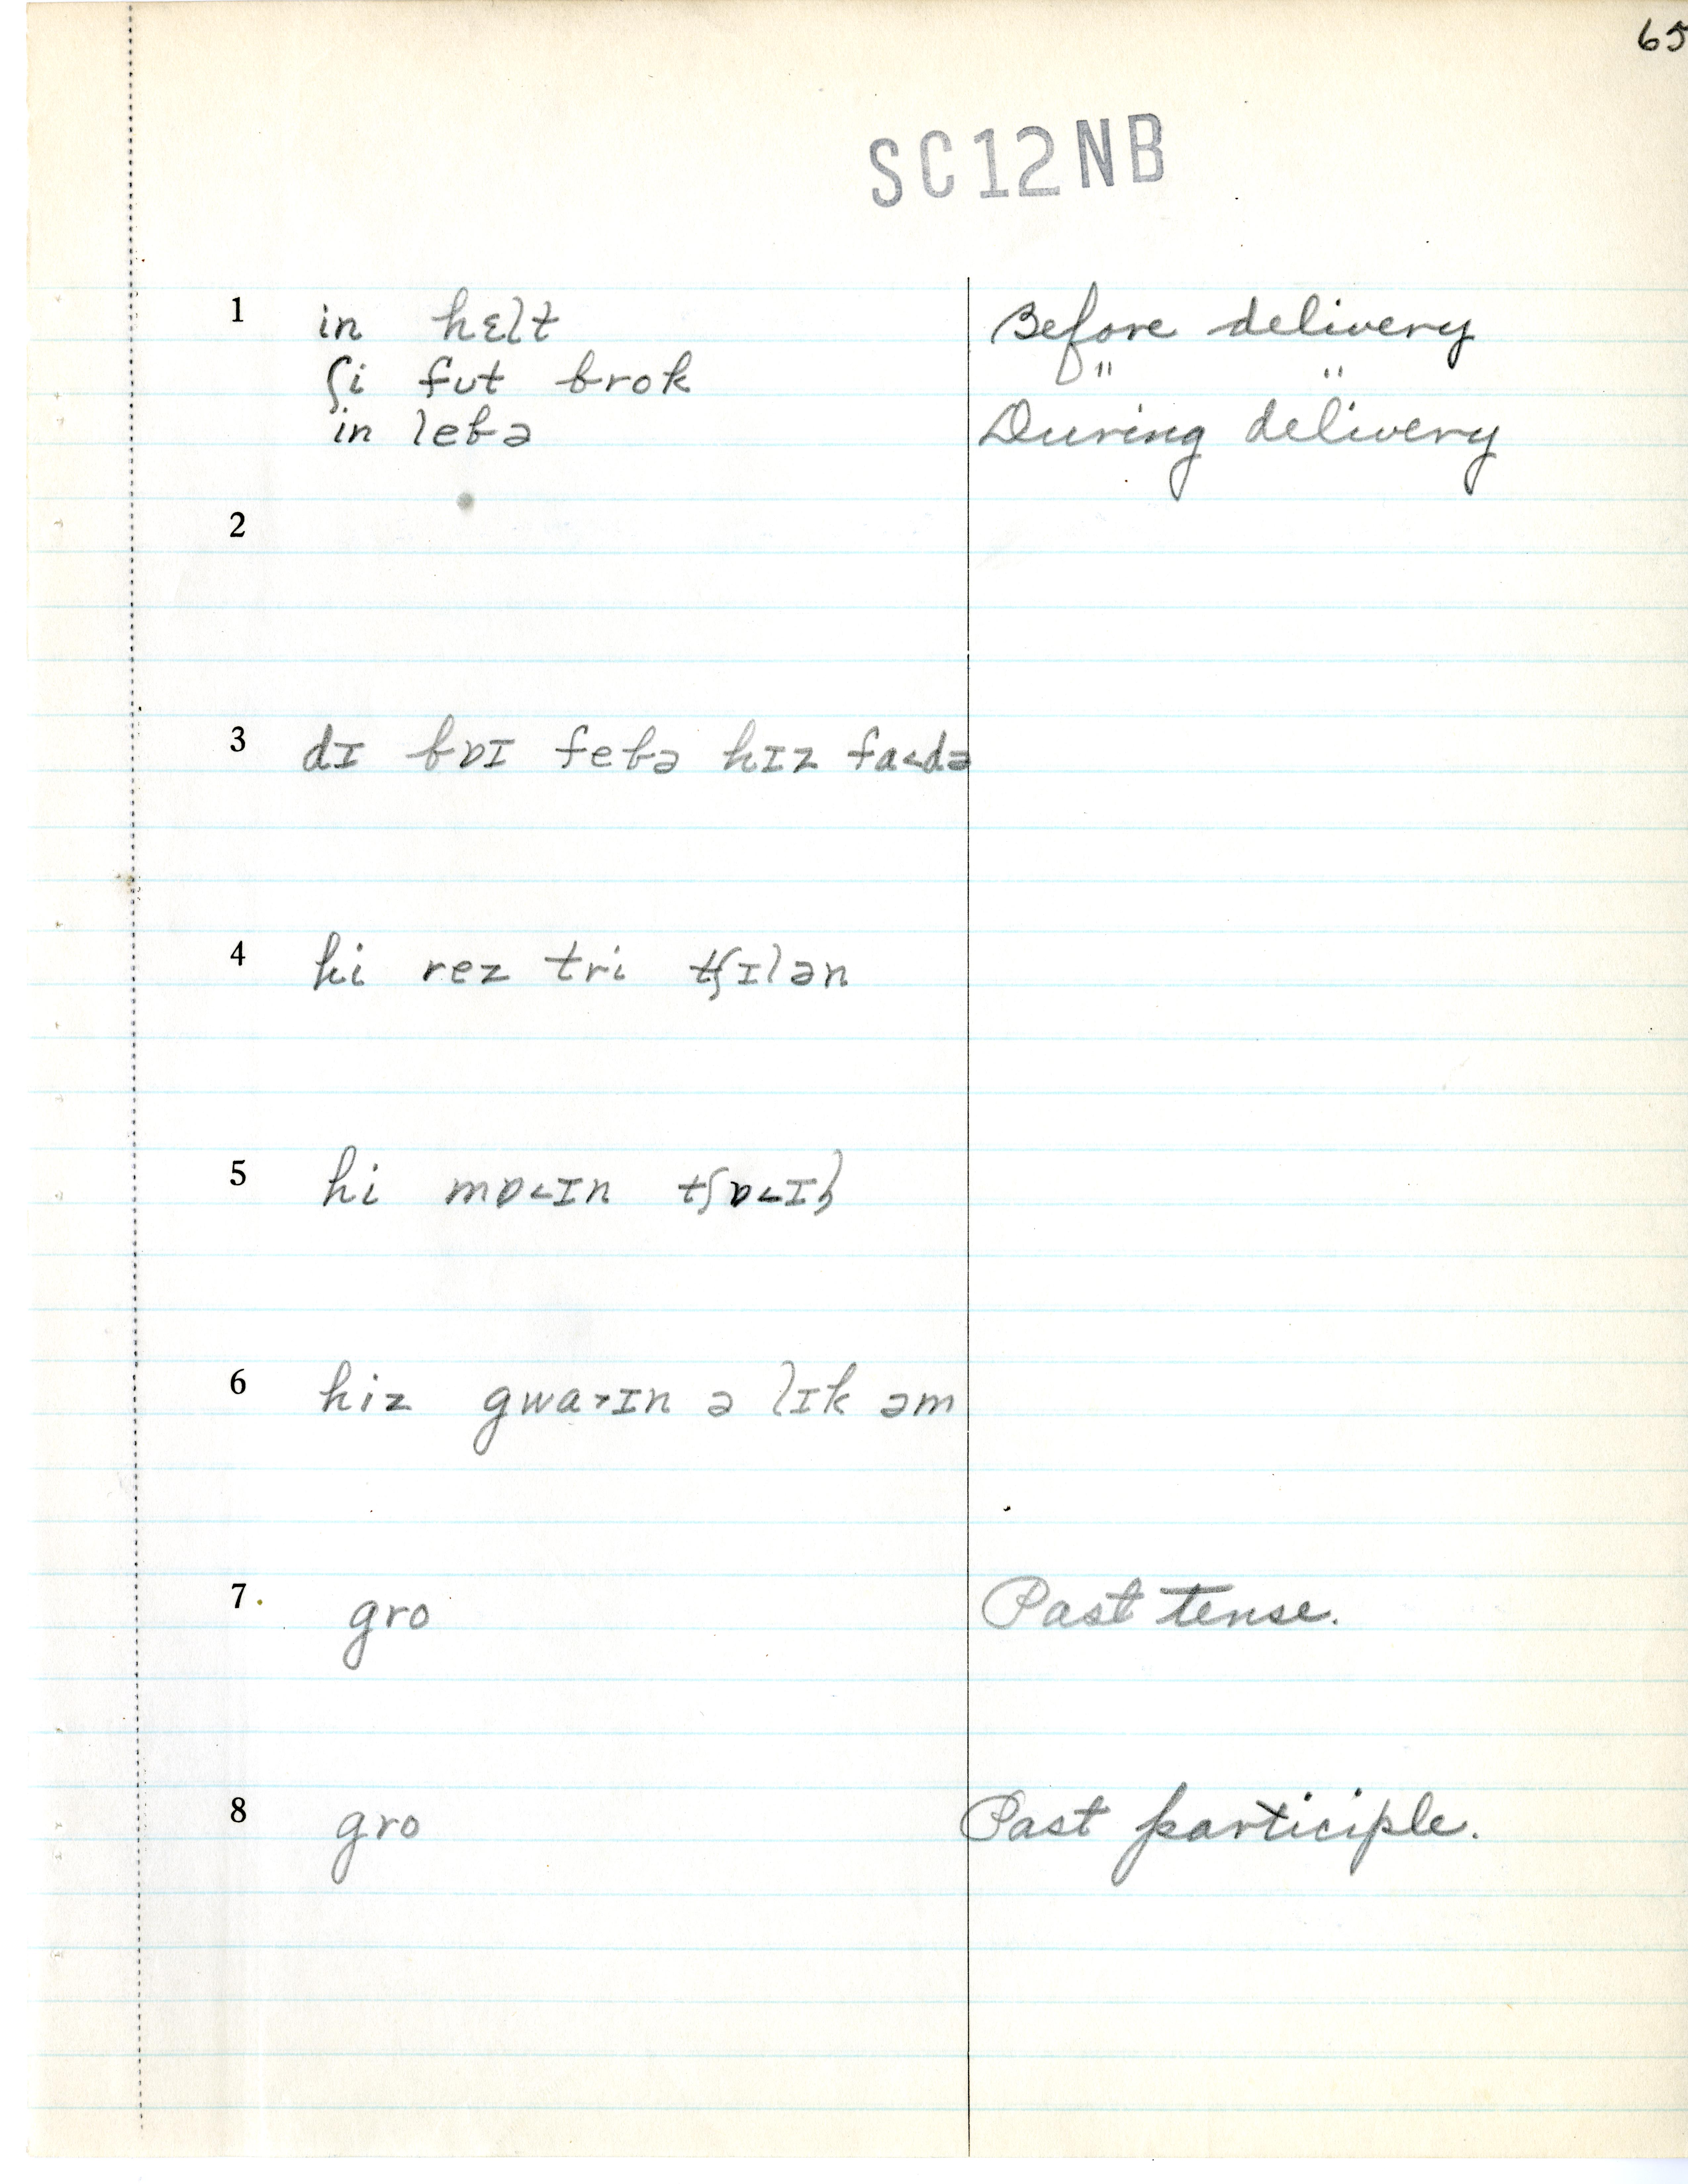 65
SC12NB
1 in hɛlt Before delivery
ʃi fʊt brok " "
in lebə During delivery
2
3 dɪ bɒɪ febə hɪz fa˂də
4 hi rez tri tʃɪlən
5 hi mɒ˂ɪn tʃɒ˂ɪḷ
6 hiz gwa˃ɪn ə lɪk əm
7 gro Past tense.
8 gro Past participle.